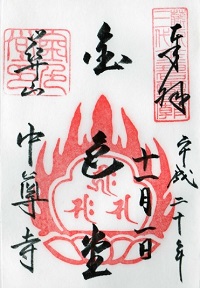 奉拝
平成二十年
十一月一日
金色堂
関山
中尊寺